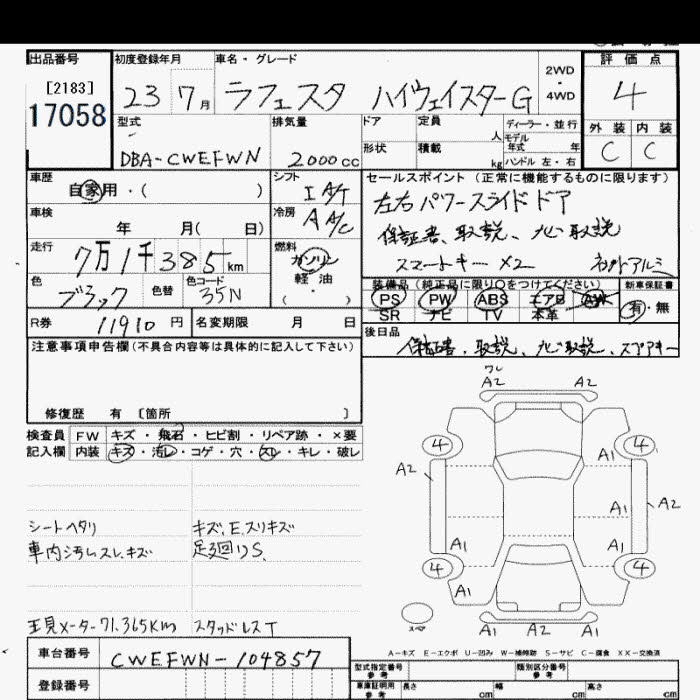 出品番号 初度登録年月 車名・グレード 評価点
[2183]
17058
23 7月 ラフェスタ ハイウェイスターG 2WD・4WD 4
型式 排気量 ドア 定員 人 ディーラー・並行 外装 内装
DBA-CWEFWN 2000cc 形状 積載 kg モデル年式 年 ハンドル 左・右 C C
車歴 自家用・( ) シフト IA/T セールスポイント (正常に機能するものに限ります)
車検 年 月( 日) 冷房 AA/C 左右パワースライドドア
保証書、取説、ナビ取説
走行 7万1千385km 燃料 ガソリン 軽油 ( ・ ) スマートキー×2
色 ブラック 色替 色コード 35N
装備品 (純正品に限り○をつけてください) 新車保証書
PS PW ABS エアB AW 有・無
SR ナビ TV 本革
R券 11910円 名変期限 月 日 後日品
注意事項申告欄(不具合内容等は具体的に記入して下さい) 保証書、取説、ナビ取説、スペアキー
修復歴 有 〔箇所 〕
検査員 FW キズ・飛石・ヒビ割・リペア跡・×要
記入欄 内装 キズ・汚レ・コゲ・穴・スレ・キレ・破レ
ワレ
A2 A2
4 4
A1
A2
A1 A2
A1 A1
4 4
A1 A1
A1 A2 A1
スペア
シートヘタリ キズ、E、スリキズ
車内汚レスレ、キズ 足廻りS、
現メーター71,365Km スタッドレスT
A-キズ E-エクボ U-凹み W-補修跡 S-サビ C-腐食 XX-交換済
車台番号 CWEFWN-104857
型式指定番号 参考 類別区分番号 参考
登録番号
車庫証明用 参考 長さ cm 幅 cm 高さ cm